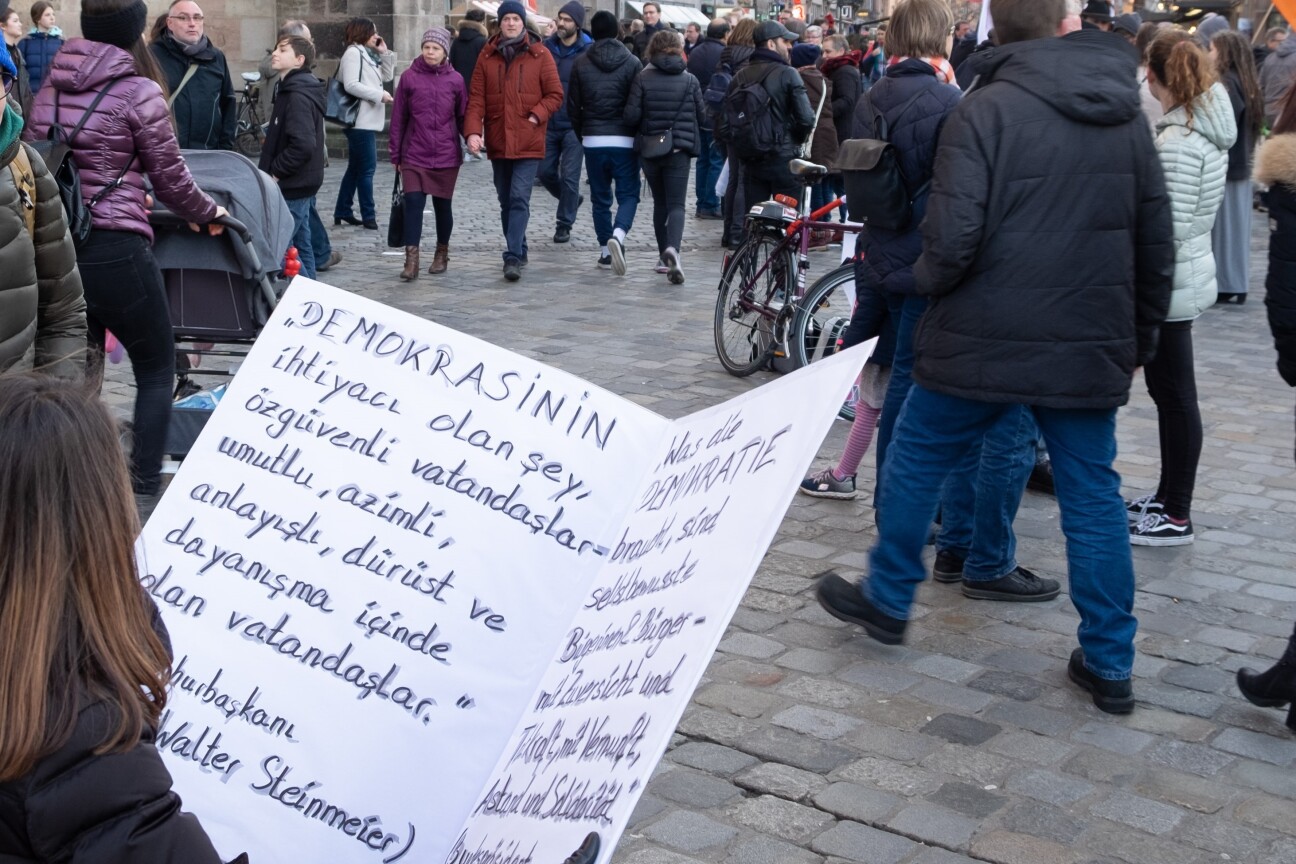 „DEMOKRASİNİN
ihtiyacı olan şey,
özgüvenli vatandaşlar-
umutlu, azimli,
anlayışlı, dürüst ve
dayanışma içinde
olan vatandaşlar."
hurbaşkanı
Walter Steinmeier)
„Was die
DEMOKRATIE
braucht, sind
selbstbewusste
Bürgerinnen & Bürger -
mit Zuversicht und
Tatkraft, mit Vernunft,
Anstand und Solidarität."
(Bundespräsident